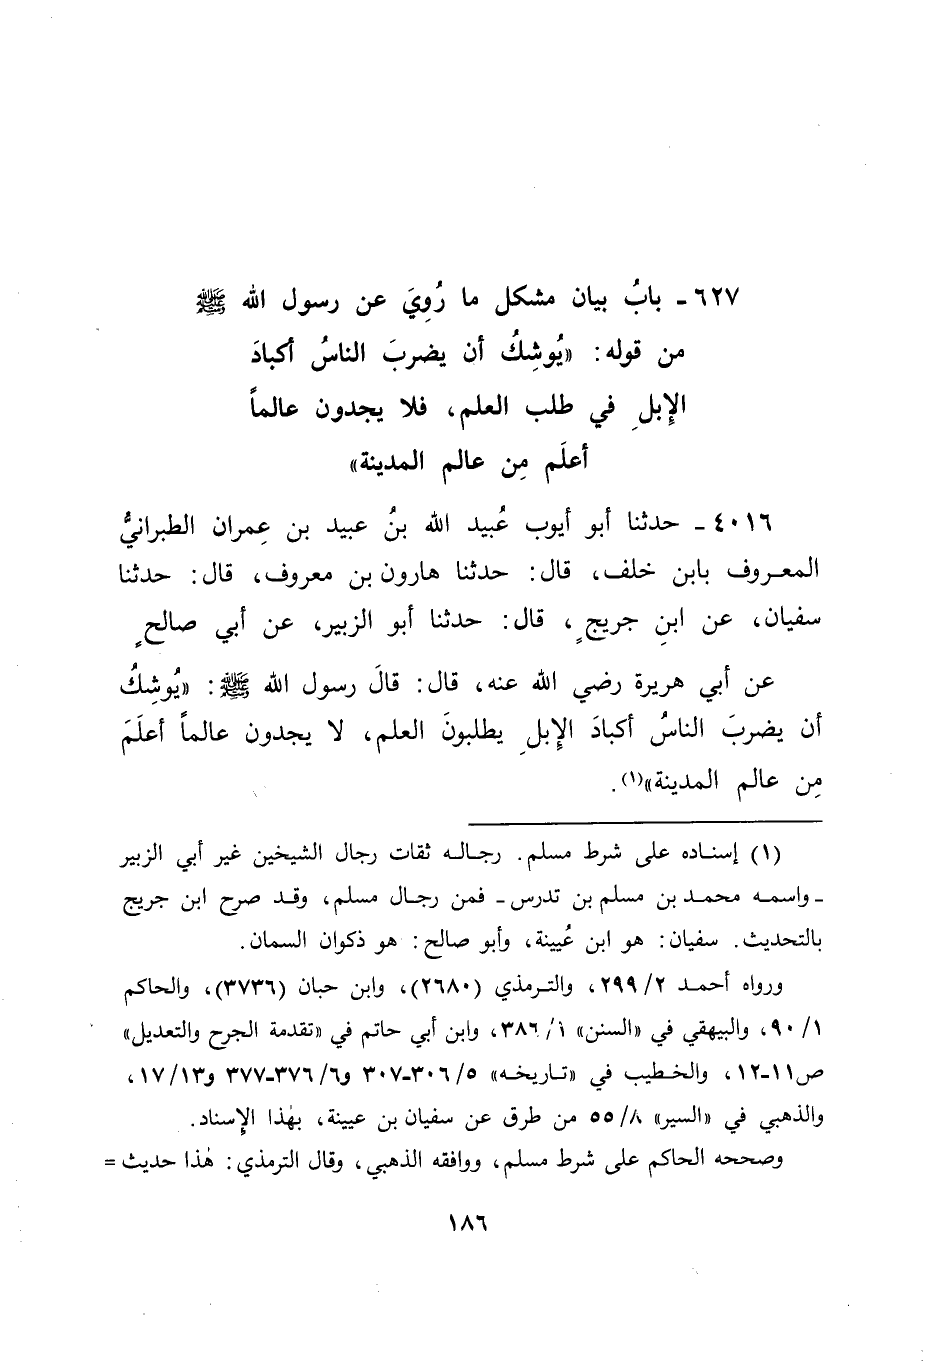 ٦٢٧ - بابُ بيان مشكل ما رُوِيَ عن رسول الله ﷺ
من قوله: «يُوشِكُ أن يضربَ الناسُ أكبادَ
الإِبلِ في طلب العلم، فلا يجدون عالماً
أعلَم مِن عالم المدينة»
٤٠١٦ - حدثنا أبو أيوب عُبيد الله بنُ عبيد بن عِمران الطبرانيُّ
المعروف بابن خلف، قال: حدثنا هارون بن معروف، قال: حدثنا
سفيان، عن ابنِ جريجٍ، قال: حدثنا أبو الزبير، عن أبي صالحٍ
عن أبي هريرة رضي الله عنه، قال: قالَ رسول الله ﷺ: «يُوشِكُ
أن يضربَ الناسُ أكبادَ الإِبلِ يطلبونَ العلم، لا يجدون عالماً أعلَمَ
مِن عالم المدينة»(١).
(١) إسناده على شرط مسلم. رجاله ثقات رجال الشيخين غير أبي الزبير
- واسمه محمد بن مسلم بن تدرس - فمن رجال مسلم، وقد صرح ابن جريج
بالتحديث. سفيان: هو ابن عُيينة، وأبو صالح: هو ذكوان السمان.
ورواه أحمد ٢/٢٩٩، والترمذي (٢٦٨٠)، وابن حبان (٣٧٣٦)، والحاكم
١/٩٠، والبيهقي في «السنن» ١/٣٨٦، وابن أبي حاتم في «تقدمة الجرح والتعديل»
ص١١-١٢، والخطيب في «تاريخه» ٥/٣٠٦-٣٠٧ و٦/٣٧٦-٣٧٧ و١٧/١٣،
والذهبي في «السير» ٨/٥٥ من طرق عن سفيان بن عيينة، بهٰذا الإِسناد.
وصححه الحاكم على شرط مسلم، ووافقه الذهبي، وقال الترمذي: هٰذا حديث =
١٨٦